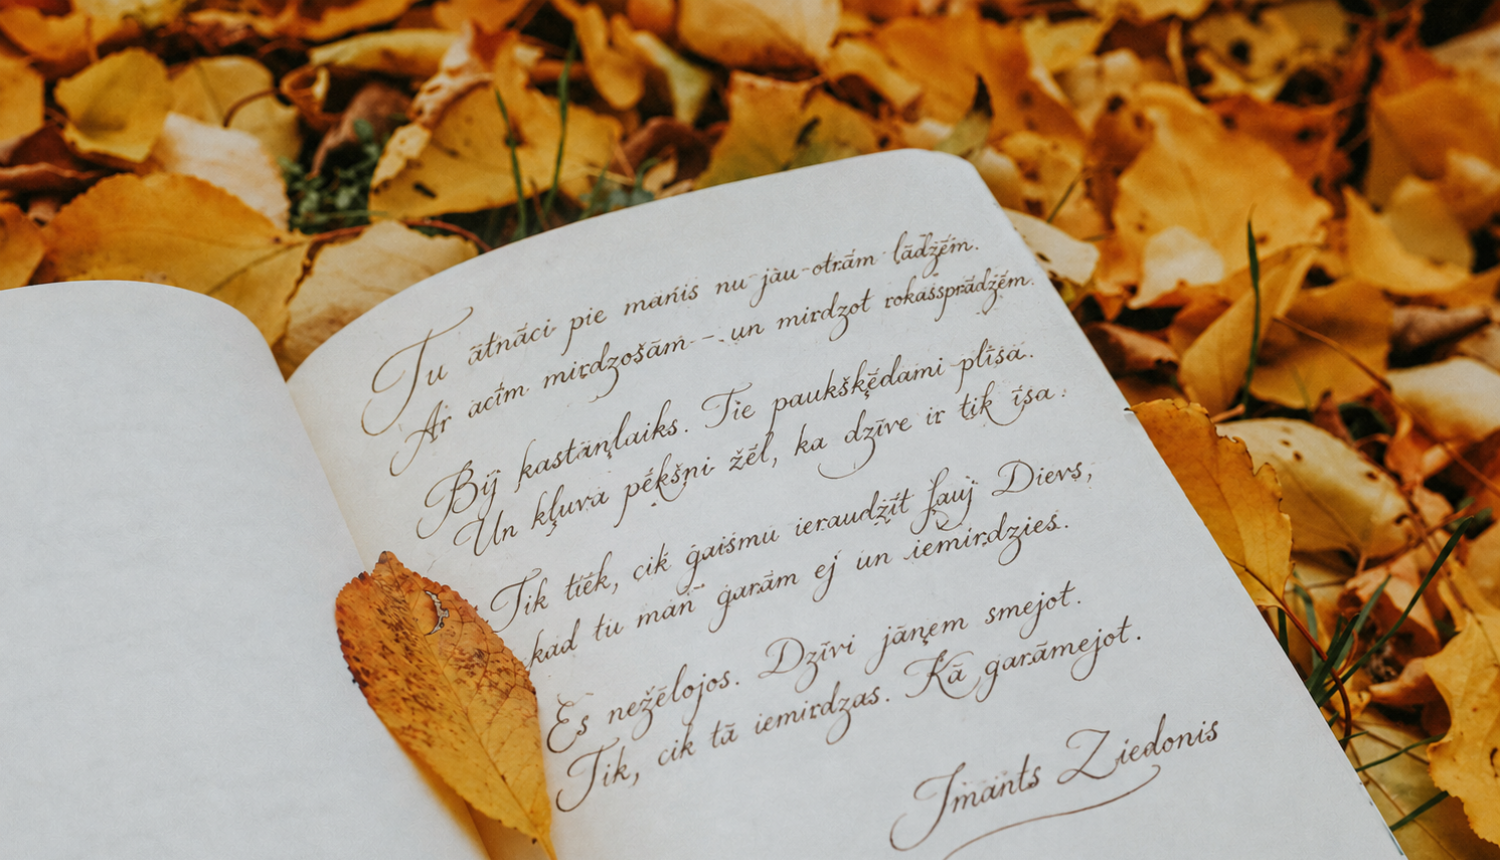 Tu atnāci pie manis nu jau otrām lādžēm.
Ar acīm mirdzošām – un mirdzot rokassprādzēm.
Bij kastaņlaiks. Tie paukšķēdami plīsa.
Un kļuva pēkšņi žēl, ka dzīve ir tik īsa.
Tik tiek, cik gaismu ieraudzīt ļauj Dievs,
kad tu man garām ej un iemirdzies.
Es nežēlojos. Dzīvi jāņem smejot.
Tik, cik tā iemirdzas. Kā garāmejot.
Imants Ziedonis